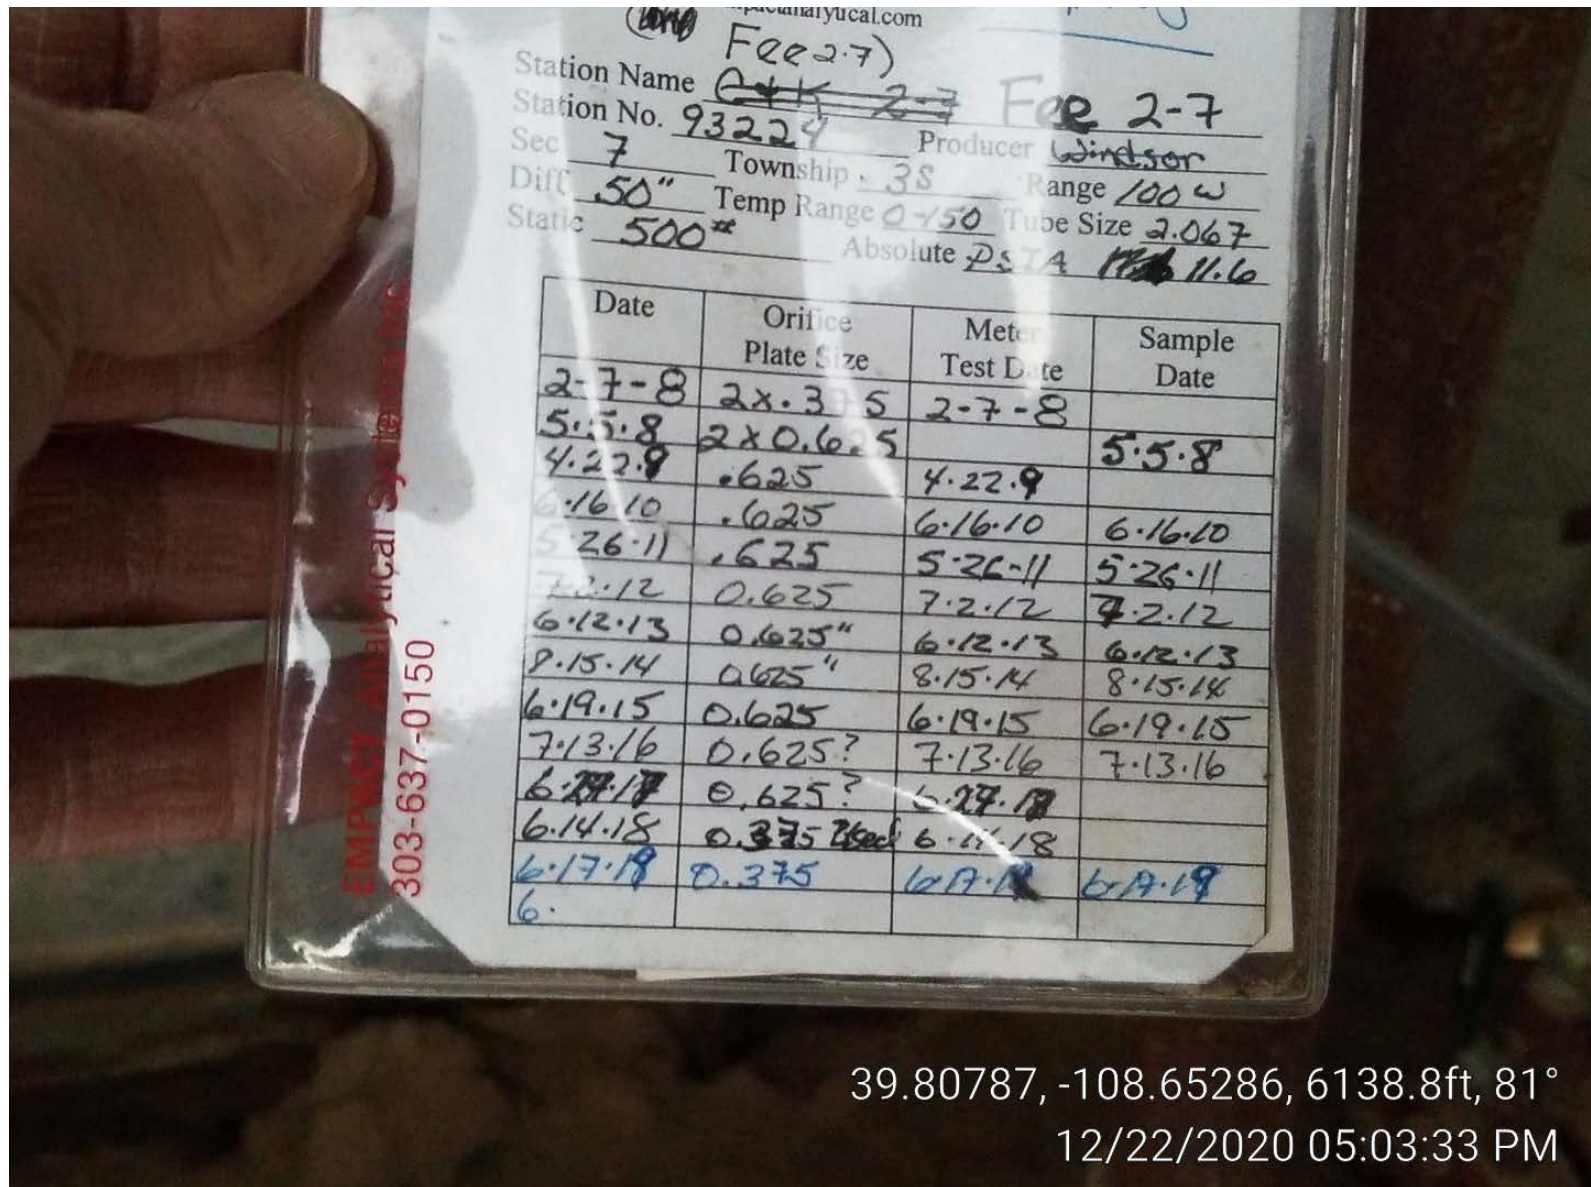 Fee 2-7)
Station Name Fee 2-7
Station No. 93224 Producer Windsor
Sec 7 Township 3S Range 100 W
Diff. 50" Temp Range 0-150 Tube Size 2.067
Static 500# Absolute PSIA 11.6
Date Orifice Plate Size Meter Test Date Sample Date
2-7-8 2x.375 2-7-8
5.5.8 2x0.625 5.5.8
4.22.9 .625 4.22.9
6.16.10 .625 6.16.10 6.16.10
5.26.11 .625 5-26-11 5.26.11
7.2.12 0.625 7.2.12 7.2.12
6.12.13 0.625" 6.12.13 6.12.13
8.15.14 0.625" 8.15.14 8.15.14
6.19.15 0.625 6.19.15 6.19.15
7.13.16 0.625? 7.13.16 7.13.16
0.625?
6.14.18 0.375 Used 6.14.18
6.17.19 0.375 6.17.19
6.
EMPACT Analytical Systems Inc
303-637-0150
39.80787, -108.65286, 6138.8ft, 81°
12/22/2020 05:03:33 PM